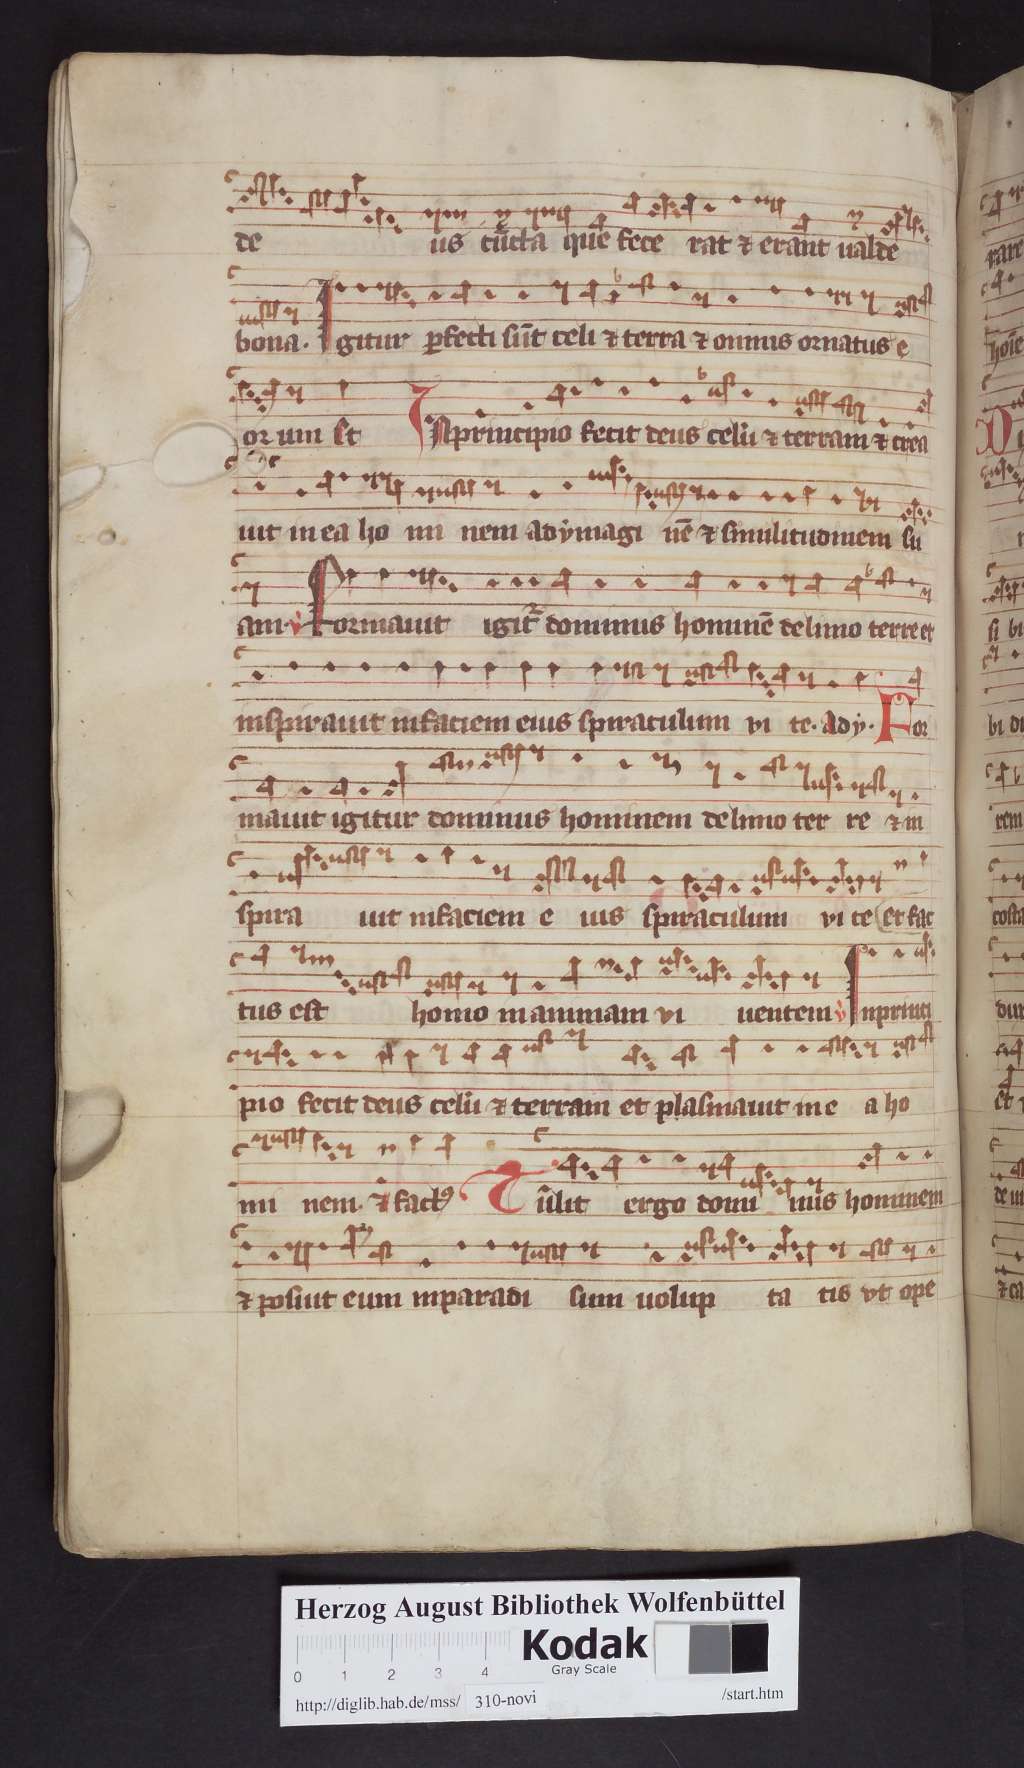 de us cūcta que fece rat ⁊ erant ualde
bona. Igitur ꝑfecti sūt celi ⁊ terra ⁊ omnis ornatus e
or um st INprincipio fecit deus celū ⁊ terram ⁊ crea
uit in ea ho mi nem adymagi nē ⁊ similitudinem su
am. ℣ Formauit igit᷑ dominus hominē delimo terre et
inspirauit infaciem eius spiraculum vi te. ady. For
mauit igitur dominus hominem delimo ter re ⁊ in
spira uit infaciem e ius spiraculum vi te et fac
tus est homo inanimam vi uentem ℣ Inprinci
pio fecit deus celū ⁊ terram et plasmauit in e a ho
mi nem. ⁊ factꝰ Tūlit ergo domi nus hominem
⁊ posuit eum inparadi sum uolup ta tis vt ope
rare
hoīe
si bi
bi di
rem
costa
dur
et
de
⁊ ca
Herzog August Bibliothek Wolfenbüttel
0 1 2 3 4
Kodak
Gray Scale
http://diglib.hab.de/mss/ 310-novi /start.htm